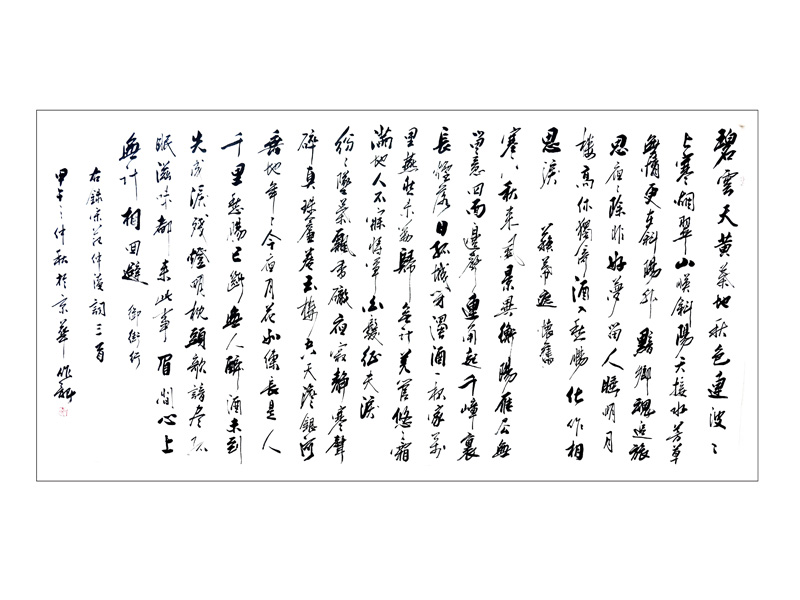 碧雲天黃葉地秋色連波〻
上寒烟翠山映斜陽天接水芳草
無情更在斜陽外 黯鄉魂追旅
思夜〻除非好夢留人睡明月
樓高休獨倚酒入愁腸化作相
思淚 蘇幕遮 懷舊
塞下秋來風景異衡陽雁去無
留意四面邊聲連角起千嶂裏
長煙落日孤城閉濁酒一杯家萬
里燕然未勒歸無計羌管悠〻霜
滿地人不寐將軍白髮征夫淚
紛〻墜葉飄香砌夜寂靜寒聲
碎真珠簾卷玉樓空天淡銀河
垂地年〻今夜月花如練長是人
千里愁腸已斷無人醉酒未到
先成淚殘燈明枕頭欹諳盡孤
眠滋味都來此事眉間心上
無計相回避 御街行
右錄宋范仲淹詞三首
甲午之仲秋於京華